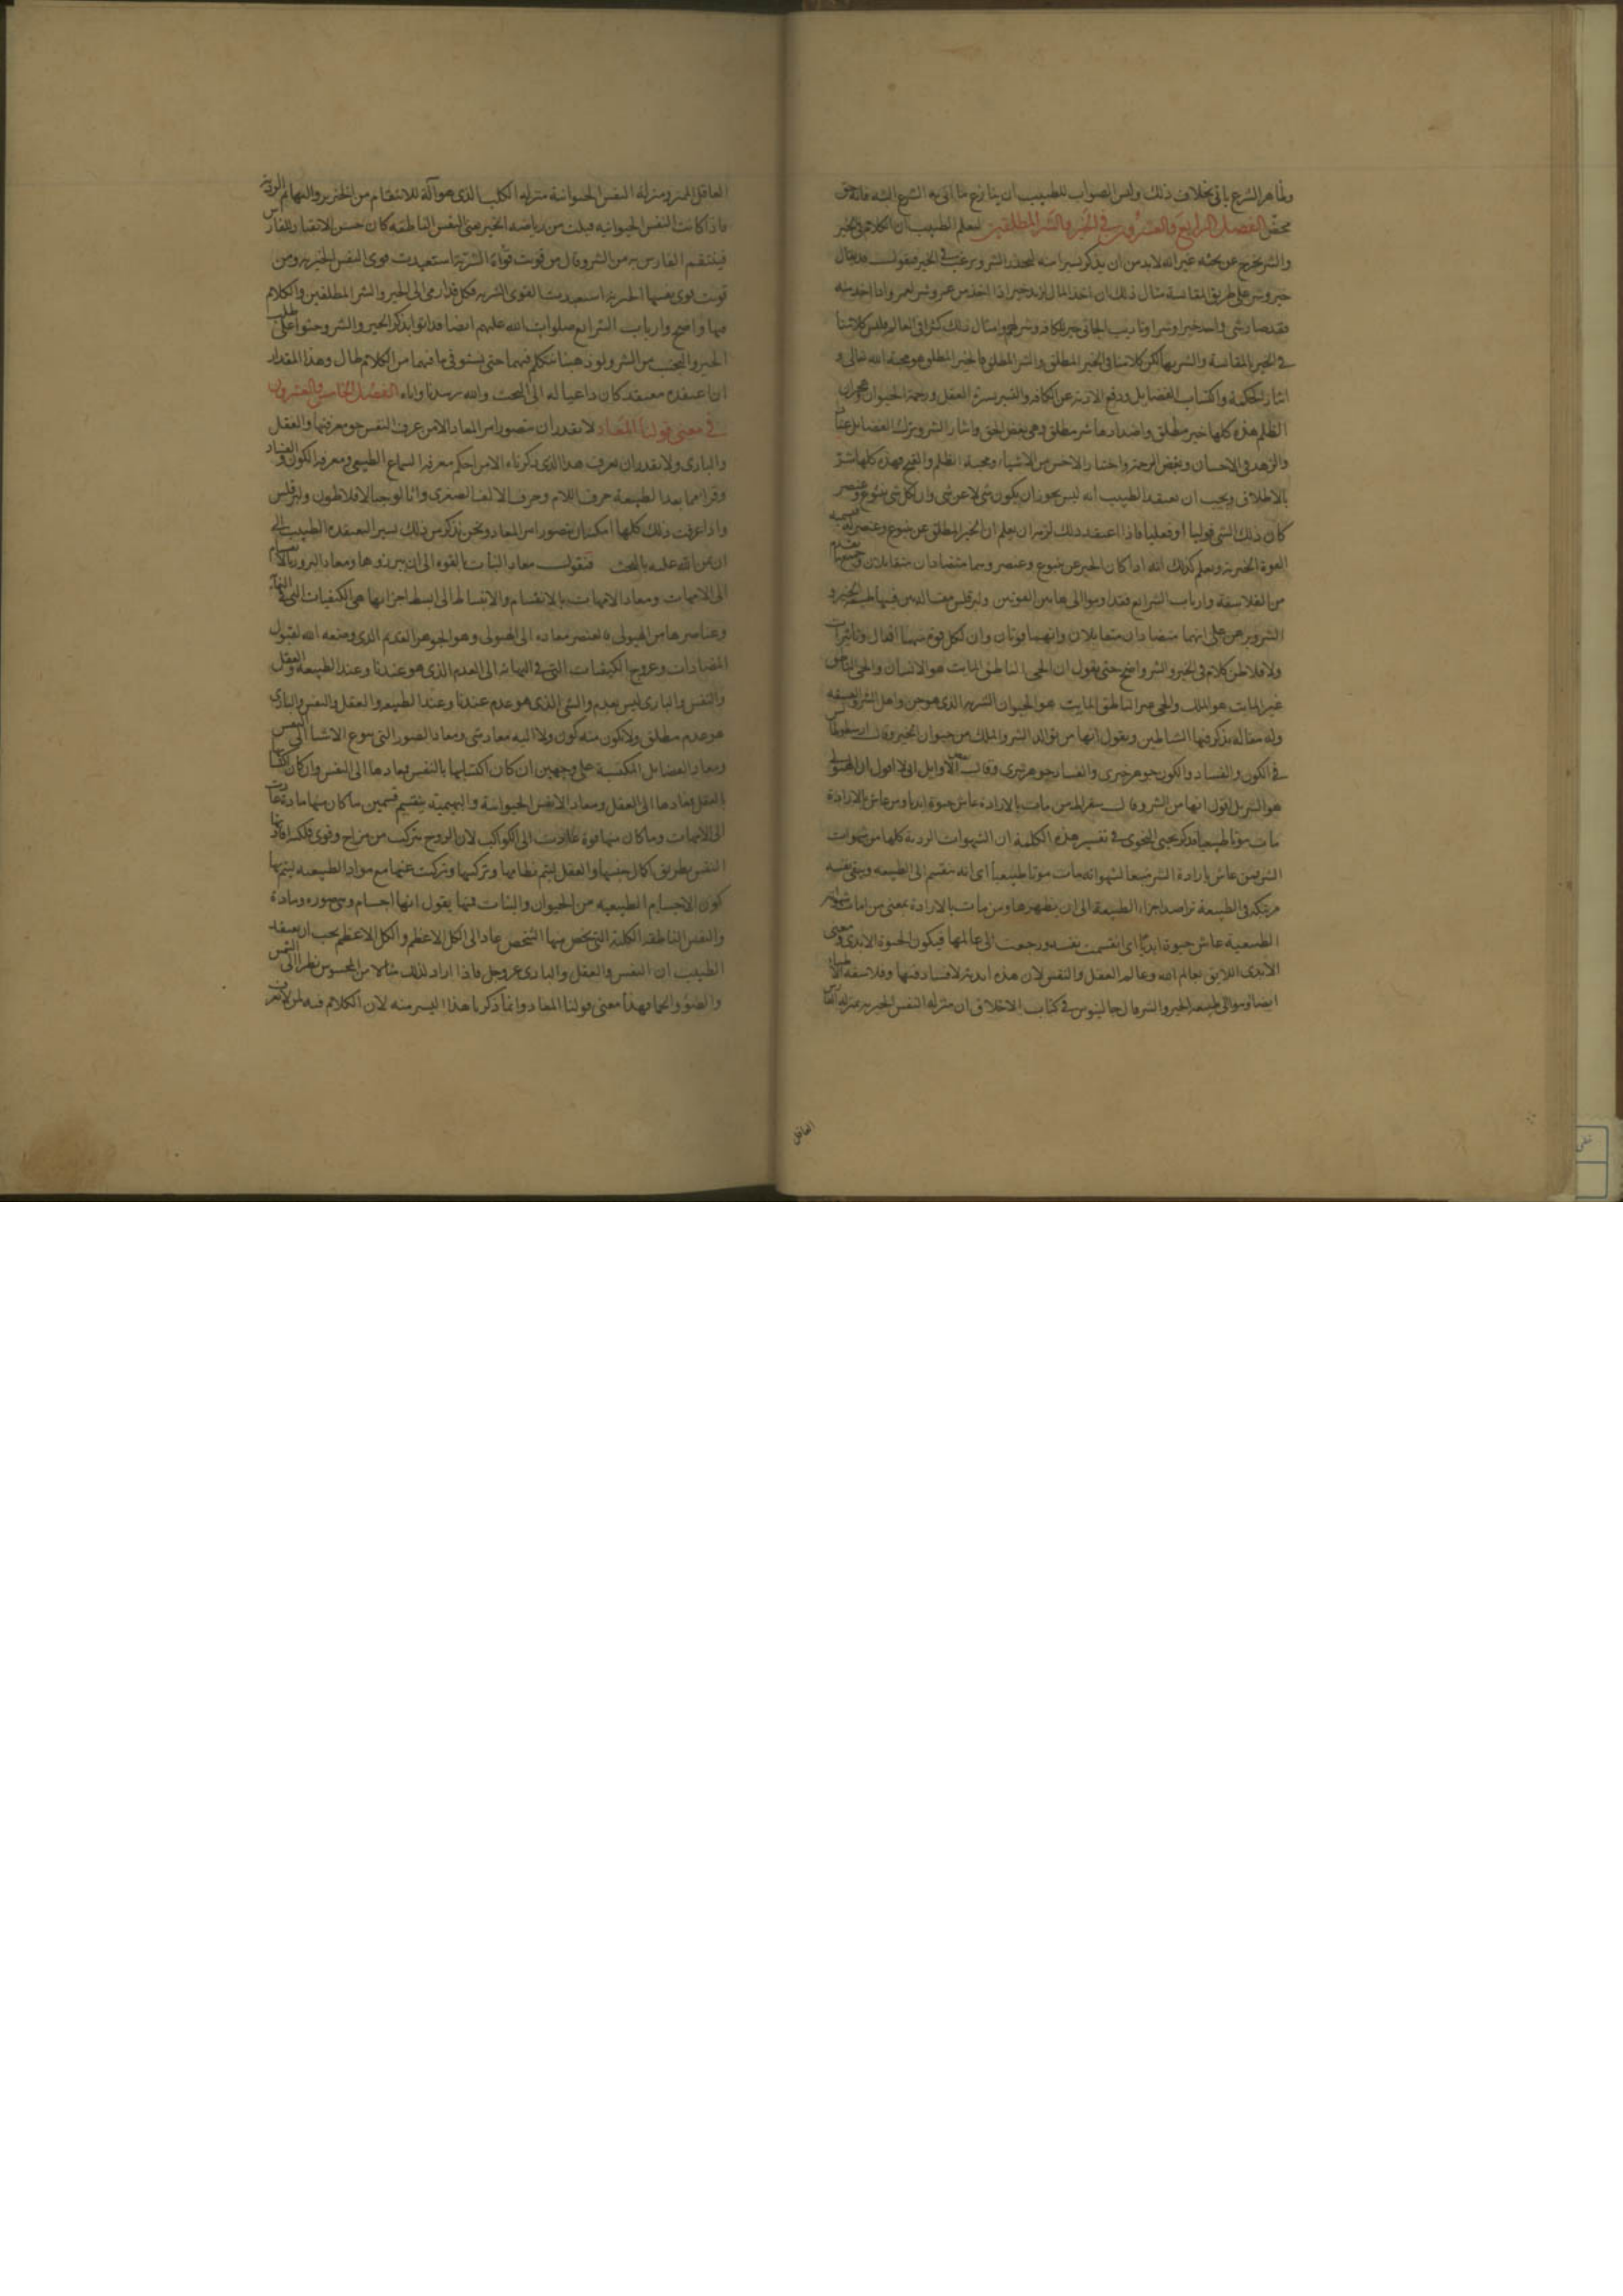 وظاهر الشرع یاتی بخلاف ذلك ولیس الصواب للطبیب ان ینازع ما اتی به الشرع البته فانه حق
محض الفصل الرابع والعشرون فی الخیر والشر المطلقین لیعلم الطبیب ان الکلام فی الخیر
والشر یخرج عن بحثه غیر انه لابد من ان یذکر یسیرا منه لیحذر الشر ویرغب فی الخیر فیقول قد یقال
خیر وشر علی طریق المقایسة مثال ذلك ان اخذ المال لزید خیر اذا اخذ من عمرو وشر لعمرو اذا اخذ منه
فقد صار شی واحد خیرا وشرا وتادیب الجانی خیر للکافة وشر له وامثال ذلك کثیر فی العالم ولیس کلامنا
فی الخیر بالمقایسة والشر بها لکن کلامنا فی الخیر المطلق والشر المطلق فالخیر المطلق هو محبة الله تعالی و
ایثار الحکمة واکتساب الفضایل ودفع الاذیة عن الکافة والتبر بسیرة العقل ورحمة الحیوان وهجران
الظلم هذه کلها خیر مطلق واضدادها شر مطلق وهی بغض الحق وایثار الشر وترك الفضایل
والزهد فی الاحسان وبغض الرحمة واختیار الاخس من الاشیاء ومحبة الظلم والقبح فهذه کلها شر
بالاطلاق ویجب ان یعتقد الطبیب انه لیس یجوز ان یکون شی لا عن شی وان لکل شی ینبوع وعنصر
کان ذلك الشی قولیا او فعلیا فاذا اعتقد ذلك لزمه ان یعلم ان الخیر المطلق عن ینبوع وعنصر
القوة الخیریة ویعلم کذلك انه اذا کان الخیر عن ینبوع وعنصر وهما متضادان متقابلان وجمیع
من الفلاسفة وارباب الشرایع فقد اوموا الی هاتین القوتین ولبرقلس مقالة یبین فیها طبیعة الخیر و
الشر ویبرهن علی انهما متضادان متقابلان وانهما قوتان وان لکل قوة منهما افعال وتاثیرات
ولافلاطن کلام فی الخیر والشر واضح حتی یقول ان الحی الناطق المایت هو الانسان والحی الناطق
غیر المایت هو الملك والحی غیر الناطق المایت هو الحیوان الشریر الذی هو جن واهل الشر
وله مقالة یذکر فیها الشیاطین ویقول انها من توالد الشر والملك من حیوان الخیر وقال ارسطوطالیس
فی الکون والفساد والکون جوهر خیری والفساد جوهر شری وقال بعض الاوایل انی لا اقول ان الهیولی
هو الشر بل اقول انها من الشر وقال سقراط من مات بالارادة عاش حیوة ابدیا ومن عاش بالارادة
مات موتا طبیعیا فذکر یحیی النحوی فی تفسیر هذه الکلمة ان الشهوات الردیة کلها من شهوات
الشر فمن عاش بارادة الشر متبعا لشهواته مات موتا طبیعیا ای انه ینقسم الی الطبیعة ویبقی نفسه
مرتبکة فی الطبیعة تراصد اجزاء الطبیعة الی ان یطهرها ومن مات بالارادة بمعنی من امات شهواته
الطبیعیة عاش حیوة ابدیا ای انقسمت نفسه ورجعت الی عالمها فیکون الحیوة الابدی ومعنی
الابدی اللایق بعالم الله وعالم العقل والنفس لان هذه ابدیة لا فساد فیها وفلاسفة الاطباء
ایضا اوموا الی طبیعة الخیر والشر قال جالینوس فی کتاب الاخلاق ان منزلة النفس الخیریة بمنزلة الفارس
العاقل
العاقل الممیز ومنزلة النفس الحیوانیة منزلة الکلب الذی هو آلة للانتقام من الخنزیر والبهائم الردیة
فاذا کانت النفس الحیوانیة قبلت من ریاضة الخیر یعنی النفس الناطقة کان حسن الانقیاد للفارس
فینتقم الفارس به من الشر وقال من قویت قواه الشریة استعبدت قوی النفس الخیریة ومن
قویت قوی نفسها الخیریة استعبدت القوی الشریة فکل قد اومی الی الخیر والشر المطلقین والکلام
فیها واضح وارباب الشرایع صلوات الله علیهم ایضا قد اتوا بذکر الخیر والشر وحثوا علی طلب
الخیر والتجنب من الشر ولو ذهبنا نتکلم فیهما حتی نستوفی ما فیهما من الکلام لطال وهذا المقدار
ان اعتقده معتقد کان داعیا له الی البحث والله یرشدنا وایاه الفصل الخامس والعشرون
فی معنی قولنا المعاد لا یقدر ان یتصور امر المعاد الا من عرف النفس حق معرفتها والعقل
والباری ولا یقدر ان یعرف هذا الذی ذکرناه الا من احکم معرفة السماع الطبیعی ومعرفة الکون والفساد
وقرا ما بعد الطبیعة حرف اللام وحرف الالف الصغری واثالوجیا لافلاطون ولبرقلس
واذا عرفت ذلك کلها امکنه ان یتصور امر المعاد ونحن نذکر من ذلك یسیرا لیعتقده الطبیب الی
ان یمن الله علیه بالبحث فنقول معاد النبات بالقوة الی ان یبرزوها ومعاد البزور بالاقسام
الی الامهات ومعاد الامهات بالانقسام والانبساط الی ابسط اجزایها هی الکیفیات التی
وعناصرها من الهیولی فالعنصر معاده الی الهیولی وهو الجوهر القدیم الذی وضعه الله لقبول
المتضادات وعروج الکیفیات التی فی النهایة الی العدم الذی هو عندنا وعند الطبیعة والعقل
والنفس والباری لیس بعدم والشی الذی هو عدم عندنا وعند الطبیعة والعقل والنفس والباری
هو عدم مطلق ولا یکون منه کون ولا الیه معاد شی ومعاد الصور التی تنوع الاشیا الی النفس
ومعاد الفضایل المکتسبة علی وجهین ان کان اکتسابها بالنفس فمعادها الی النفس وان کان اکتسابها
بالعقل فمعادها الی العقل ومعاد الانفس الحیوانیة والبهیمیة ینقسم قسمین ما کان منها مادة عادت
الی الامهات وما کان منها قوة عادت الی الکواکب لان الروح یترکب من مزاج وقوی فلکیة افادتها
النفس بطریق اکمال جنسها والعقل لیتم نظامها وترکیبها وترکبت عنها مع مواد الطبیعة لیتم بها
کون الاجسام الطبیعیة من الحیوان والنبات فیها یقول انها اجسام وهی صورة ومادة
والنفس الناطقة الکلیة التی یخص منها الشخص عاد الی الکل الاعظم والکل الاعظم یجب ان یعتقد
الطبیب ان النفس والعقل والباری عز وجل فاذا اراد لذلك مثالا من المحسوس نظر الی الشمس
والضوء والحما فهذا معنی قولنا المعاد وانما ذکرنا هذا الیسیر منه لان الکلام فیه لمن لا یعرف